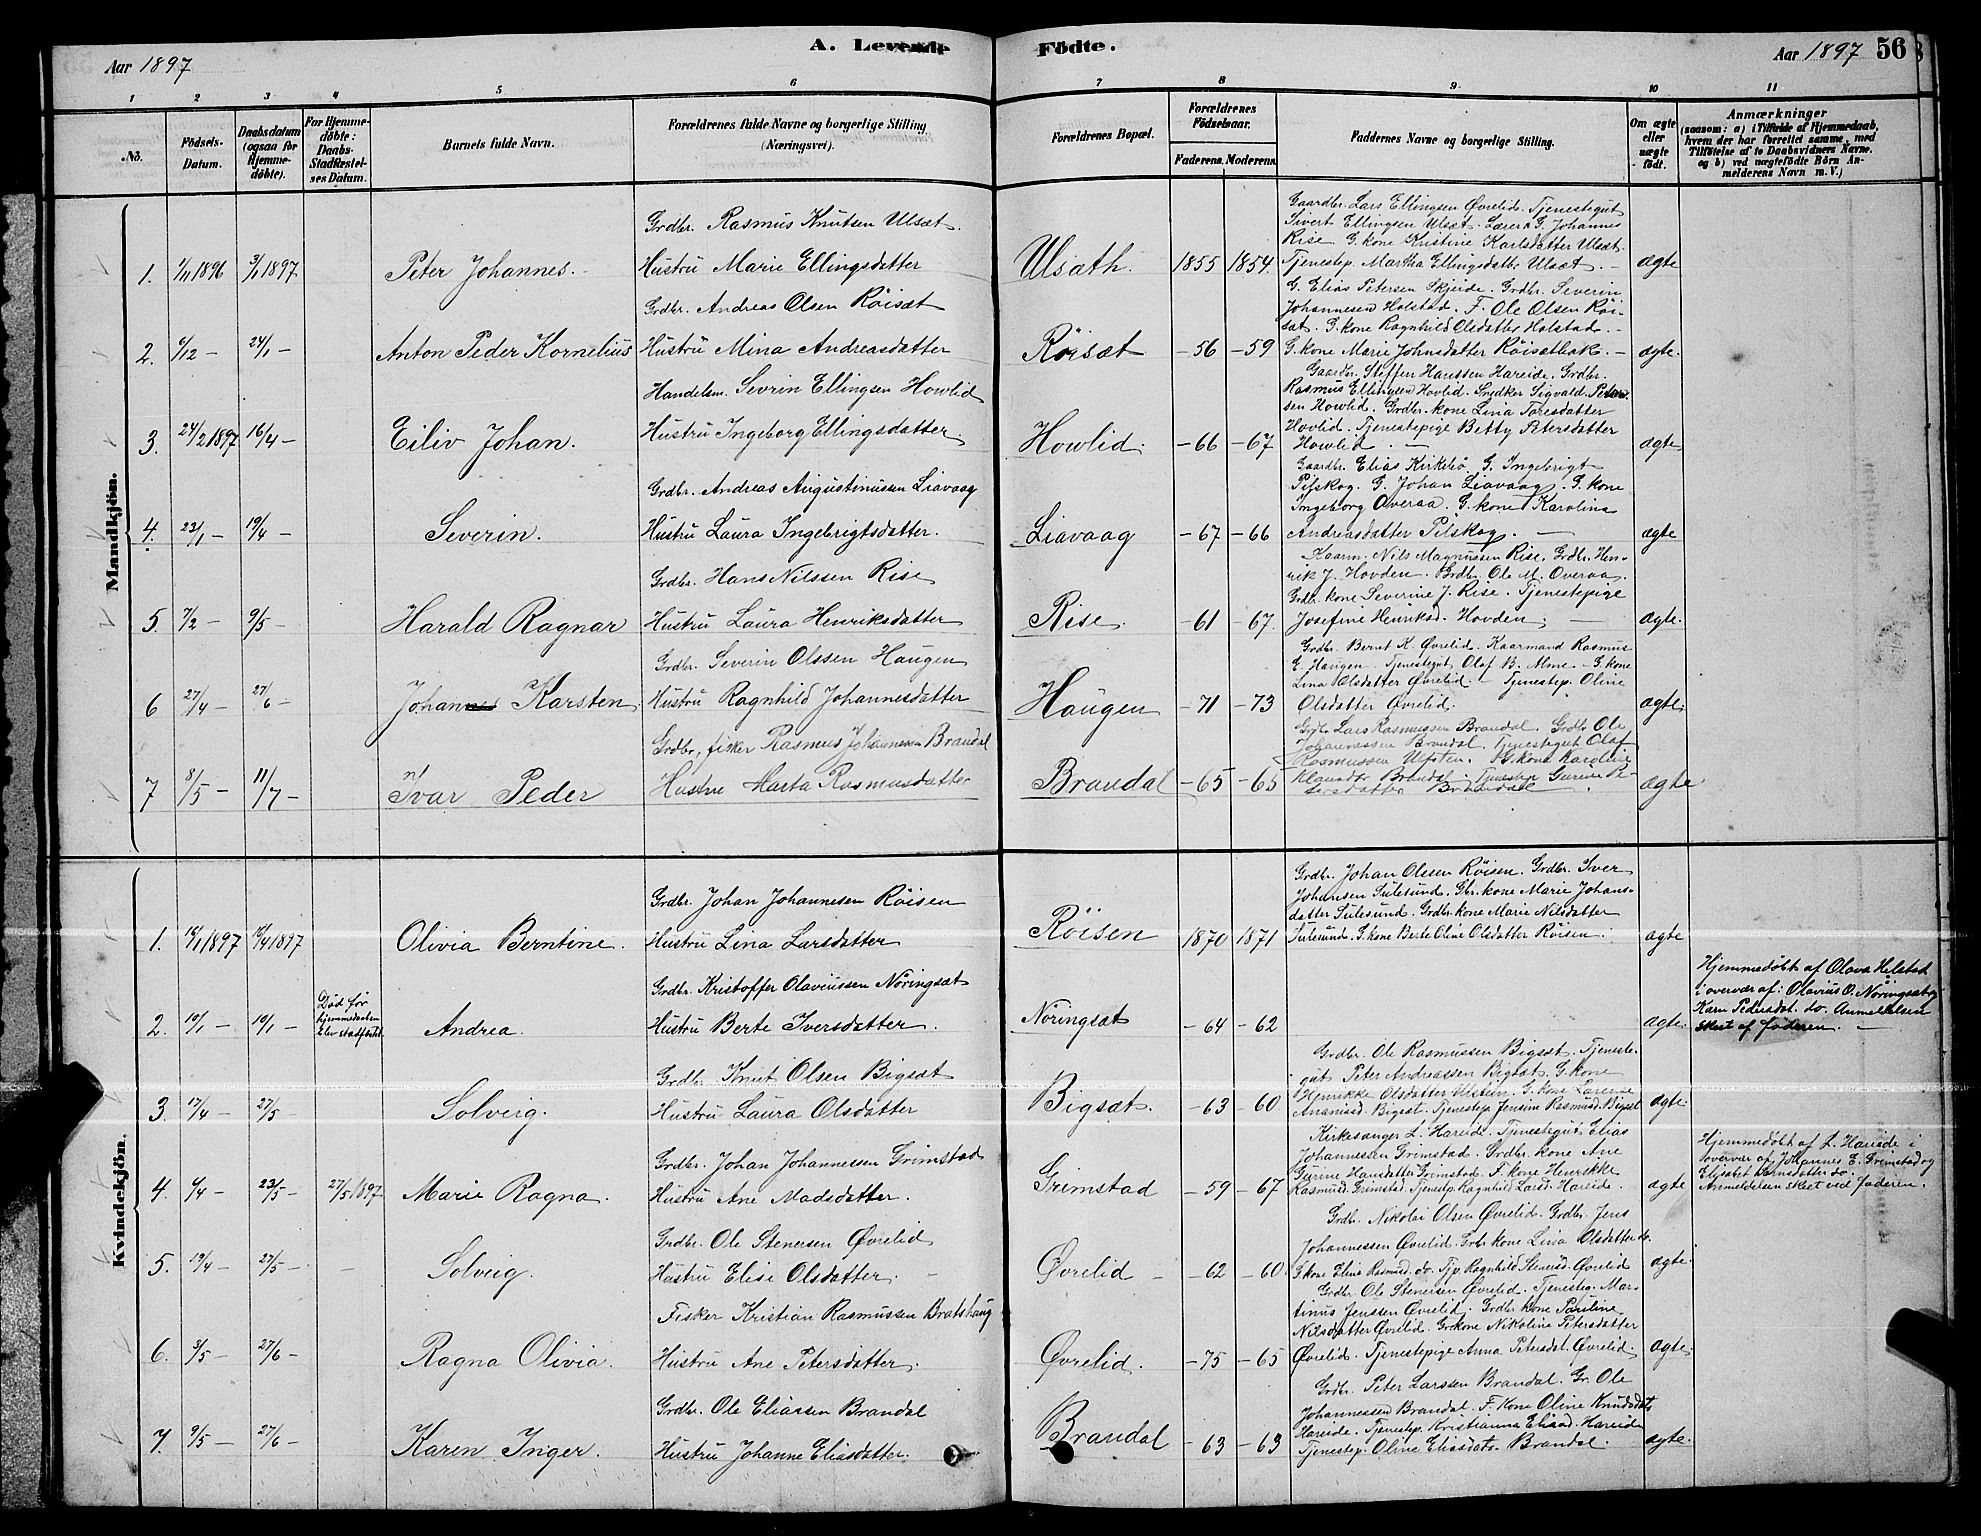 A. Levende Födte.
Aar 1897
Aar 1897 56
1 2 3 4 5 6 7 8 9 10 11
No.
Födsels-Datum.
Daabsdatum (ogsaa for Hjemme-döbte).
For Hjemme-döbte: Daabs-Stadfæstel-ses Datum.
Barnets fulde Navn.
Forældrenes fulde Navne og borgerlige Stilling (Næringsvei).
Forældrenes Bopæl.
Forældrenes Födselsaar.
Faderens. Moderens.
Faddernes Navne og borgerlige Stilling.
Om ægte eller uægte födt.
Anmærkninger
(saasom: a) i Tilfælde af Hjemmedaab, hvem der har forrettet samme, med Tilföielse af to Daabsvidners Navne. og b) ved uægtefödte Börn An-melderens Navn m. V.)
Mandkjön.
Grdbr. Rasmus Knutsen Ulsæt.
1. 1/11 1896 3/1 1897 Peter Johannes. Hustru Marie Ellingsdatter Ulsæth. 1855 1854 ægte
Gaardbr. Lars Ellingsen Øvrelid. Tjenestegut
Sivert Ellingsen Ulsæt. Lærer G. Johannes
Rise G. kone Kristine Karlsdatter Ulsæt.
Tjenestep. Martha Ellingsdatter Ulsæt.
Grdbr. Andreas Olsen Röisæt
2. 6/12 — 24/1 — Anton Peder Kornelius Hustru Mina Andreasdatter Röisæt — 56 — 59 ægte.
G. Elias Petersen Skjeide. Grdbr. Severin
Johannesen Holstad. F. Ole Olsen Röi-
sæt. G. kone Ragnhild Olsdatter Holstad.
G. kone Marie Johnsdatter Röisætbak.
Handelsm. Sevrin Ellingsen Howlid
3. 24/2 1897 16/4 — Eiliv Johan. Hustru Ingeborg Ellingsdatter Howlid. — 66 — 67 ægte
Gaardbr. Steffen Hanssen Hareide. Grdbr.
Rasmus Ellingsen Hovlid. Snedker Sigvald Peter-
sen Howlid. Grdbr. kone Lina Toresdatter
Hovlid. Tjenestepige Betty Petersdatter
Howlid
Grdbr. Andreas Augustinussen Liavaag
4. 23/1 — 19/4 — Severin. Hustru Laura Ingebrigtsdatter. Liavaag — 67 — 66 ægte
Gaardbr. Elias Kirkebö. G. Ingebrigt
Pilskog. G. Johan Liavaag. G. kone
Ingeborg Overaa. G. kone Karolina
Andreasdatter Pilskog.
Grdbr. Hans Nilssen Rise
5. 7/2 — 9/5 — Harald Ragnar Hustru Laura Henriksdatter Rise. — 61 — 67. ægte.
Kaarm. Nils Magnussen Rise. Grdbr. Hen-
rik J. Hovden. Grdbr. Ole M. Overaa.
Grdbr. kone Severine J. Rise. Tjenestepige
Josefine Henriksd. Hovden.
Grdbr. Severin Olssen Haugen
6 27/4 — 27/6 — Johan Karsten Hustru Ragnhild Johannesdatter Haugen — 71 — 73 ægte.
Grdbr. Bernt K. Øvrelid. Kaarmand Rasmus
E. Haugen. Tjenestegut Olaf B. Mone. G. kone
Lina Olsdatter Øvrelid. Tjenestep. Oline
Olsdatter Øvrelid.
Grdbr, fisker Rasmus Johannessen Brandal
7 8/5 — 11/7 — Ivar Peder Hustru Marta Rasmusdatter Brandal — 65 — 65 ægte
Grdbr Lars Rasmussen Brandal. Grdbr Ole
Johannessen Brandal. Tjenestegut Olaf
Rasmussen Ulsten. G. kone Karoline
Brandal. Tjenestep Gurine Pe-
tersdatter Brandal.
Kvindekjön.
Grdbr. Johan Johannesen Röisen
1. 1897 1897 Olivia Berntine. Hustru Lina Larsdatter Röisen 1870 1871 ægte
Grdbr. Johan Olssen Röisen. Grdbr. Iver
Johansen Sulesund. Gbr. kone Marie Johans-
datter Sulesund. Grdbr. kone Marie Nilsdatter
Sulesund. G. kone Berte Oline Olsdatter Röisen.
Grdbr. Kristoffer Olaviussen Nöringsæt
2. 19/1 — 19/1 — Död før hjemmedaaben blev stadfæstet Andrea. Hustru Berte Iversdatter. Nöringsæt — 64 — 62 ægte.
Hjemmedöbt af Olava Helstad
i overvær af: Olavius O. Nöringsæt og
Karn Pedersdat. do. Anmeldelsen
skeet af faderen.
Grdbr. Knut Olsen Bigsæt
3. 17/4 — 27/5 — Solveig. Hustru Laura Olsdatter Bigsæt. — 63 — 60 ægte.
Grdbr. Ole Rasmussen Bigsæt. Tjeneste-
gut Peter Andreassen Bigsæt. G. kone
Henrikke Olsdatter Ulstein. G. kone Larense
Ananiasd. Bigset. Tjenestep. Jensine Rasmusd. Bigset
Grdbr. Johan Johannessen Grimstad
4. 6/4 — 23/5 — 27/5 1897 Marie Ragna. Hustru Ane Madsdatter. Grimstad — 59 — 67 ægte
Kirkesanger L. Hareide. Tjenestegut Elias
Johannessen Grimstad. Grdbr. kone Ane
Gurine Hansdatter Grimstad. F. kone Henrikke
Rasmusd. Grimstad. Tjenestep. Ragnhild Larsd. Hareide.
Hjemmedöbt af L. Hareide i
overvær af Johannes E. Grimstad og
Elisabet do.
Anmeldelsen skeet ved faderen.
Grdbr. Ole Stenersen Øvrelid
5. 19/4 — 27/5 — — Solveig. Hustru Elise Olsdatter. Øvrelid — — 62 — 60. ægte.
Grdbr. Nikolai Olsen Øvrelid. Grdbr. Jens
Johannessen Øvrelid. Gbr. kone Lina Olsdatter do.
G. kone Elina Rasmusd. do. Tjp. Ragnhild Stenersd. Øvrelid
Fisker Kristian Rasmussen Bratshaug
6. 3/5 — 27/6 — Ragna Olivia. Hustru Ane Petersdatter. Øvrelid. — 75 — 65 ægte.
Grdbr. Ole Stenersen Øvrelid. Tjenesteg. Mar-
tinus Jenssen Øvrelid. Grdbr kone Pauline
Nilsdatter Øvrelid. Gr. kone Nikoline Petersdatter
Øvrelid. Tjenestepige Anna Petersdat. Øvrelid.
Grdbr. Ole Eliassen Brandal
7. 9/5 — 27/6 — Karen Inger. Hustru Johanne Eliasdatter. Brandal — 63 — 63 ægte.
Grdbr. Peter Larssen Brandal. Gr. Ole
Johannessen Brandal. F. kone Oline Knudsdat.
Hareide. Tjenestep. Kristianna Eliasd. Hareide
Tjenestep. Oline Eliasdatr. Brandal.